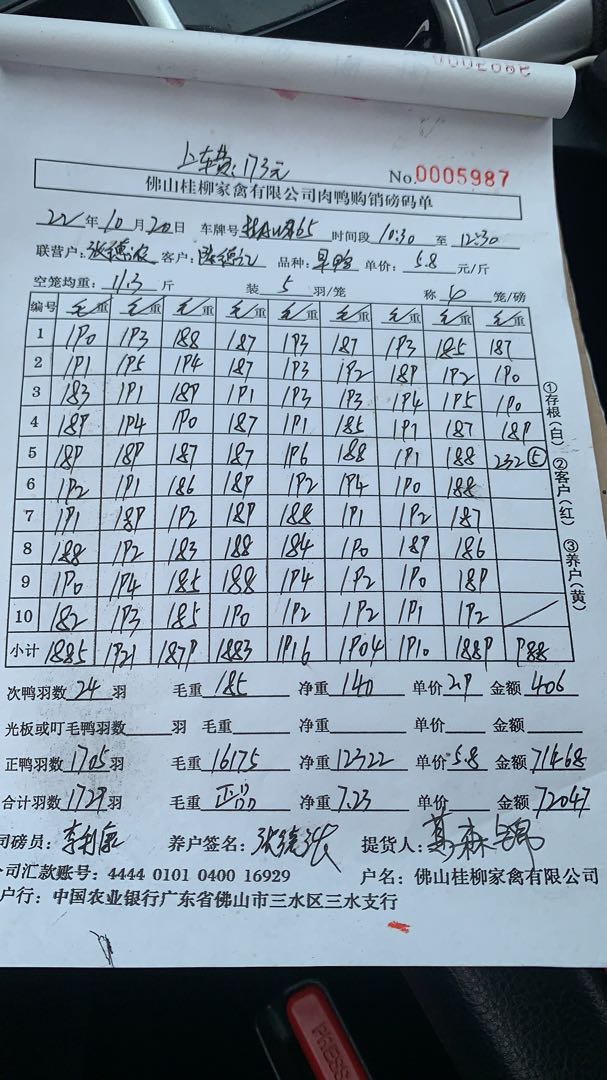 0005988
上车费:173元
No.0005987
佛山桂柳家禽有限公司肉鸭购销磅码单
22年10月20日 车牌号 时间段 10:30 至 12:30
联营户: 客户: 品种: 单价: 5.8 元/斤
空笼均重: 11.3 斤 装 5 羽/笼 称 4 笼/磅
编号 毛重 毛重 毛重 毛重 毛重 毛重 毛重 毛重 毛重
1 190 193 188 187 193 187 193 185 187
2 191 195 194 187 193 192 189 192 190
3 183 191 189 191 193 193 194 195 190
4 189 194 190 187 191 185 191 187 189
5 189 189 187 187 196 188 191 188 232⑤
6 192 191 186 189 192 194 190 188
7 191 189 192 189 188 191 192 187
8 188 192 183 188 184 190 189 186
9 190 194 185 188 194 192 190 189
10 182 193 185 190 192 192 191 192
小计 1885 1921 1879 1883 1916 1904 1910 1889 988
①存根(白) ②客户(红) ③养户(黄)
次鸭羽数 24 羽 毛重 185 净重 140 单价 2.9 金额 406
光板或叮毛鸭羽数 羽 毛重 净重 单价 金额
正鸭羽数 1705 羽 毛重 16175 净重 12322 单价 5.8 金额 71468
合计羽数 1729 羽 毛重 正品 净重 7.23 单价 金额 72047
司磅员: 养户签名: 提货人:
公司汇款账号: 4444 0101 0400 16929 户名: 佛山桂柳家禽有限公司
户行: 中国农业银行广东省佛山市三水区三水支行
PRESS